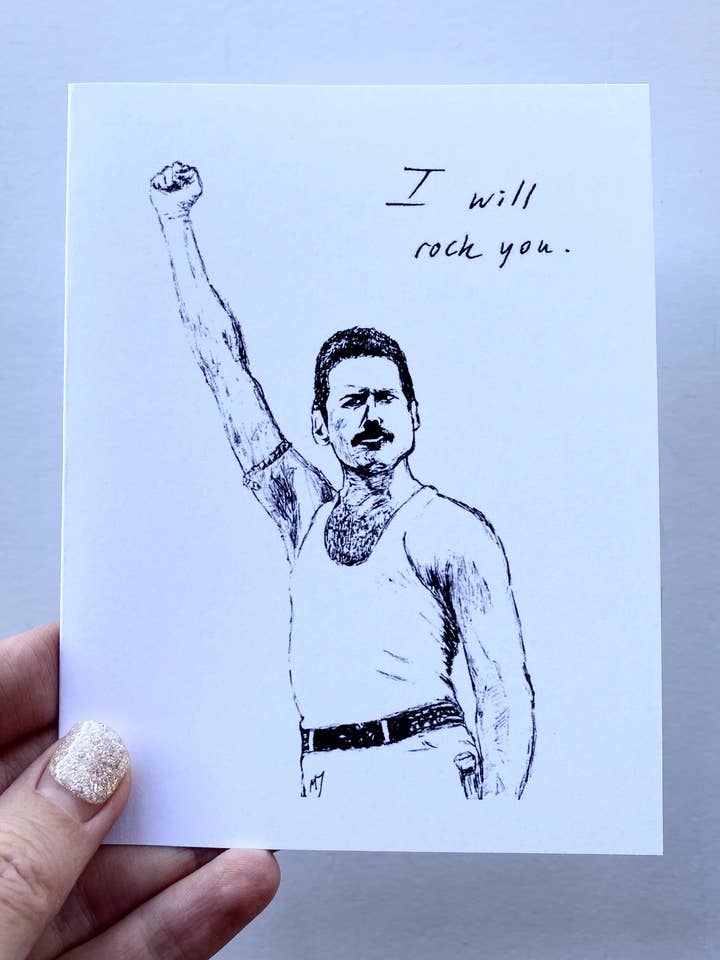 I will
rock you.
MJ